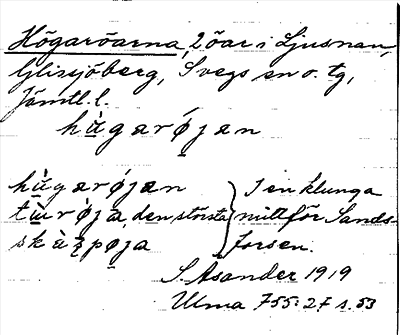 Högaröarna, 2 öar i Ljusnan,
Glissjöberg, Svegs sn o. tg,
Jämtl. l.
hùgærǿjæn
hùgærǿjæn
tùrǿja, den största
skàʒpøja
I en klunga
mittför Sands-
forsen.
S. Åsander 1919
Ulma 755:27 s. 53